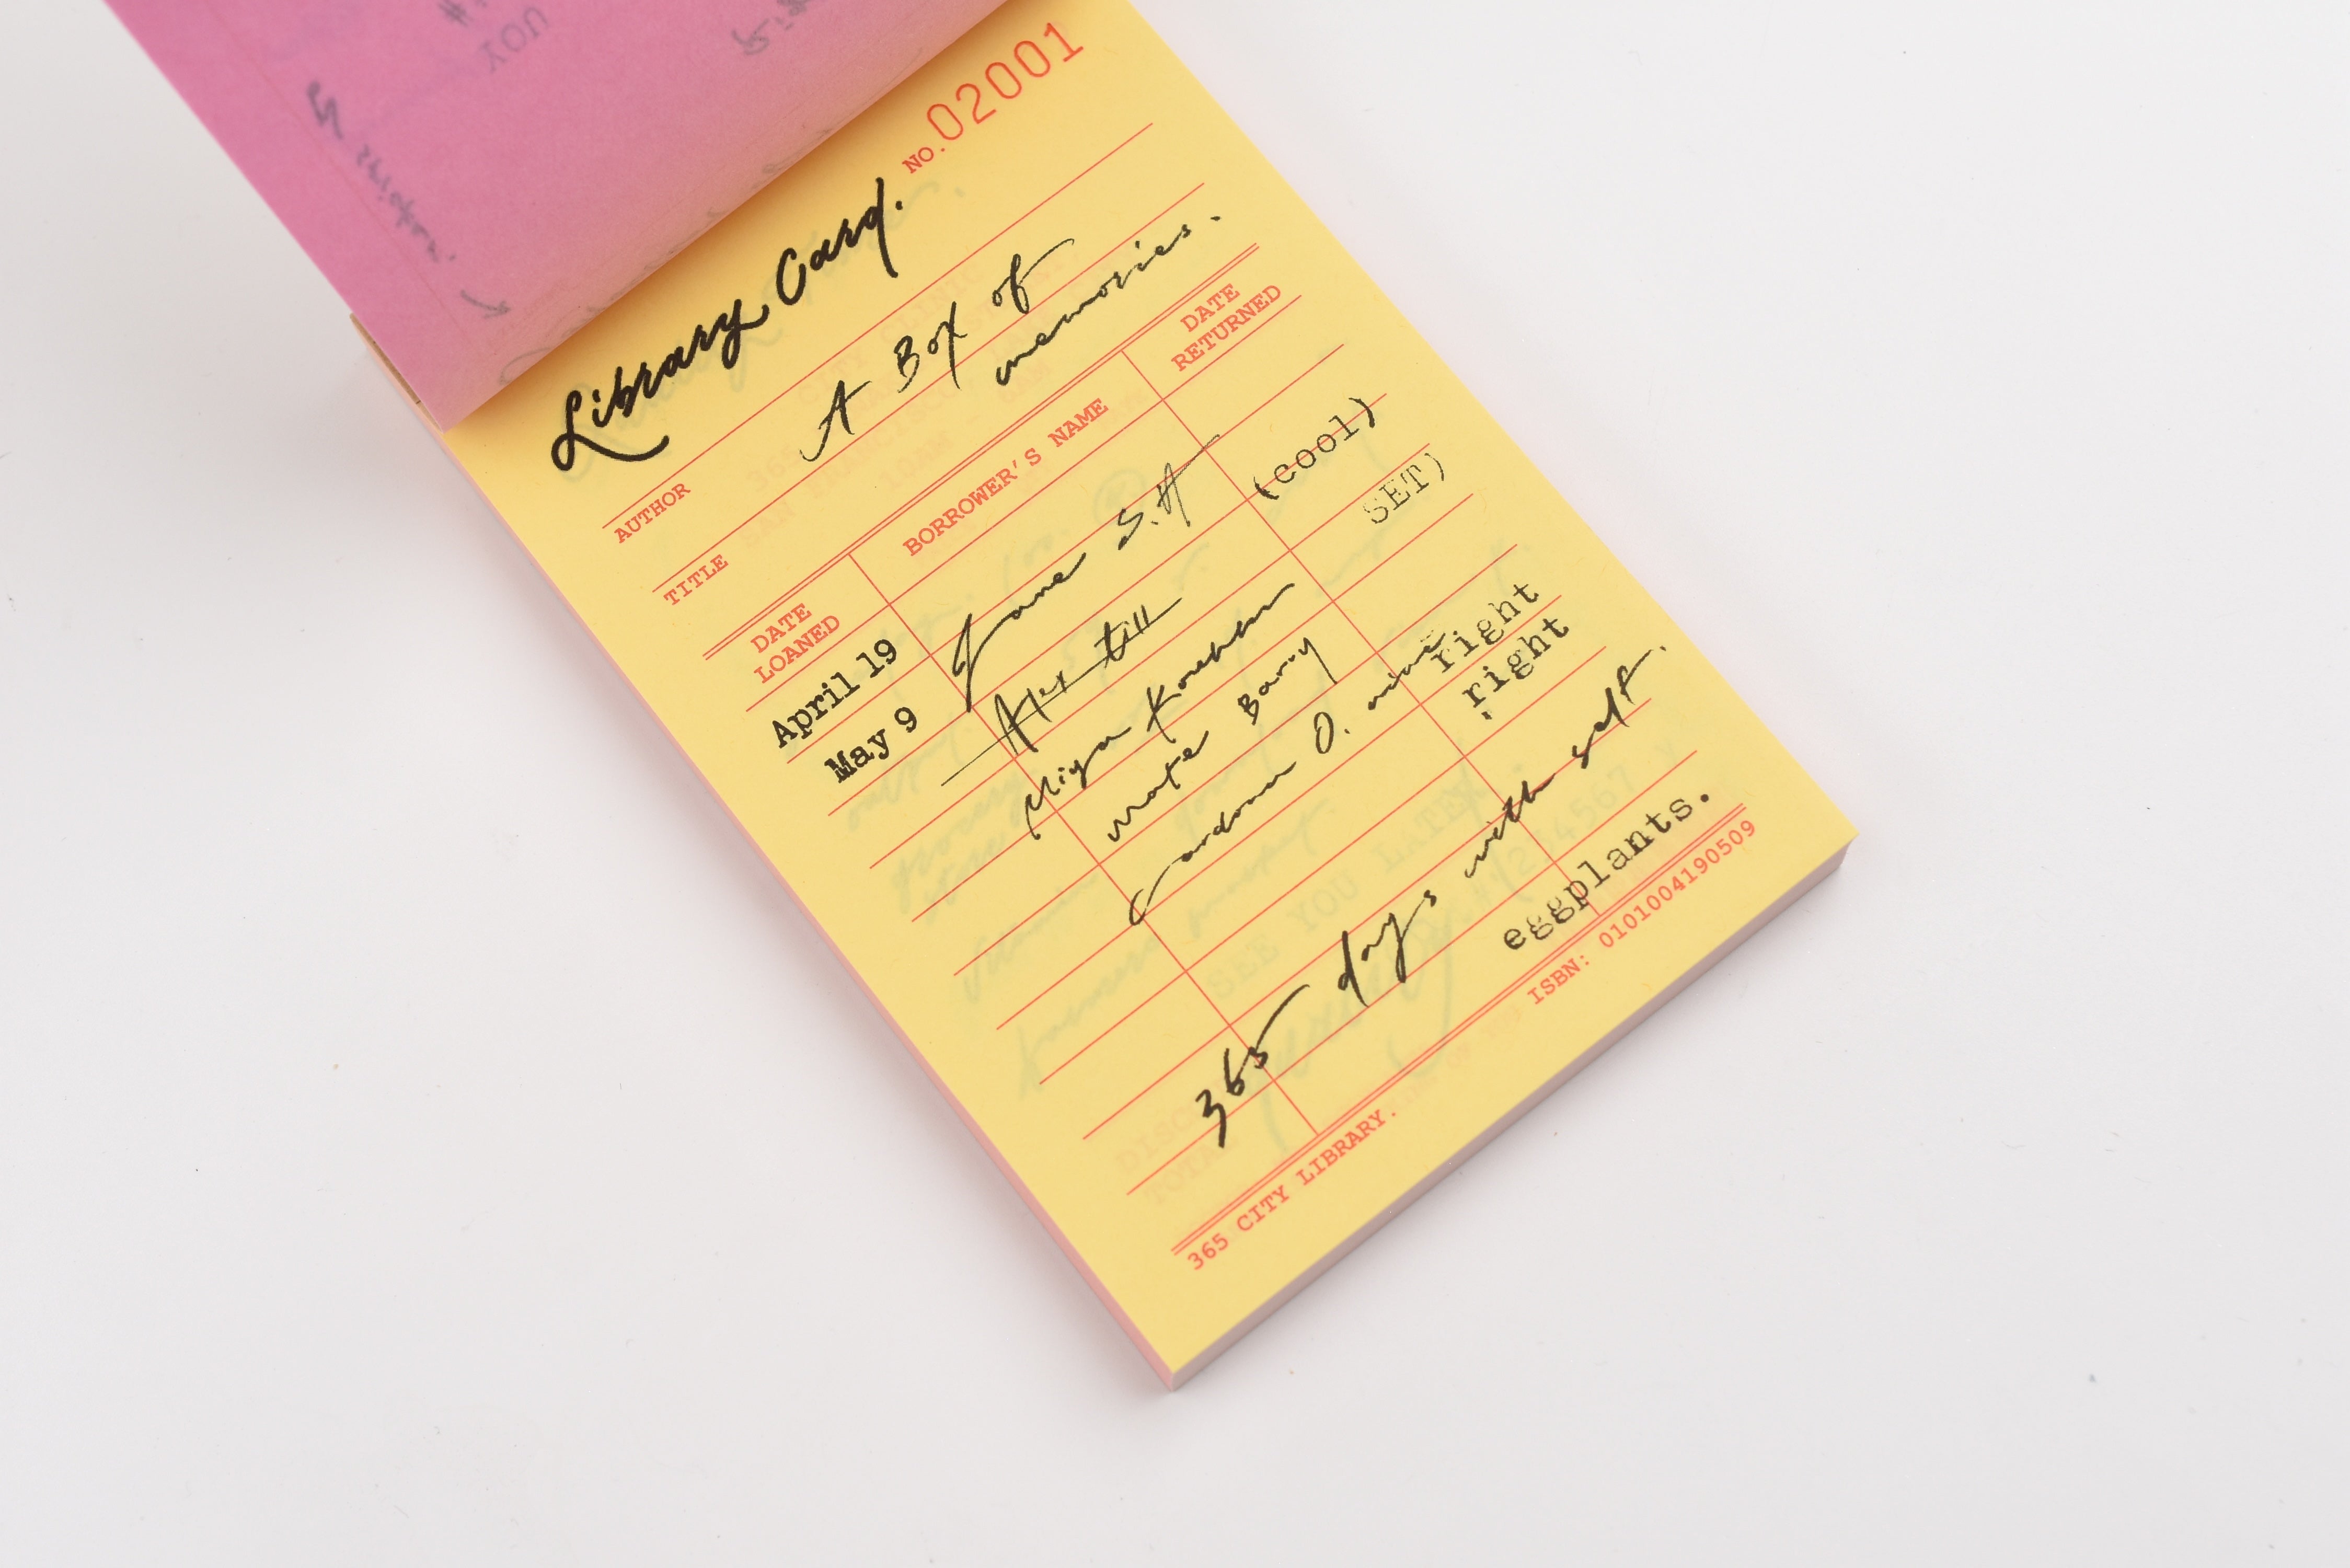 No. 02001
Library Card.
AUTHOR
A Box of
memories.
TITLE
DATE LOANED
BORROWER'S NAME
DATE RETURNED
April 19
Jane S.H
(cool)
May 9
Alex till
SET)
Miya
Barry
O.
right
right
365 days with self.
eggplants.
365 CITY LIBRARY.
ISBN: 0101004190509